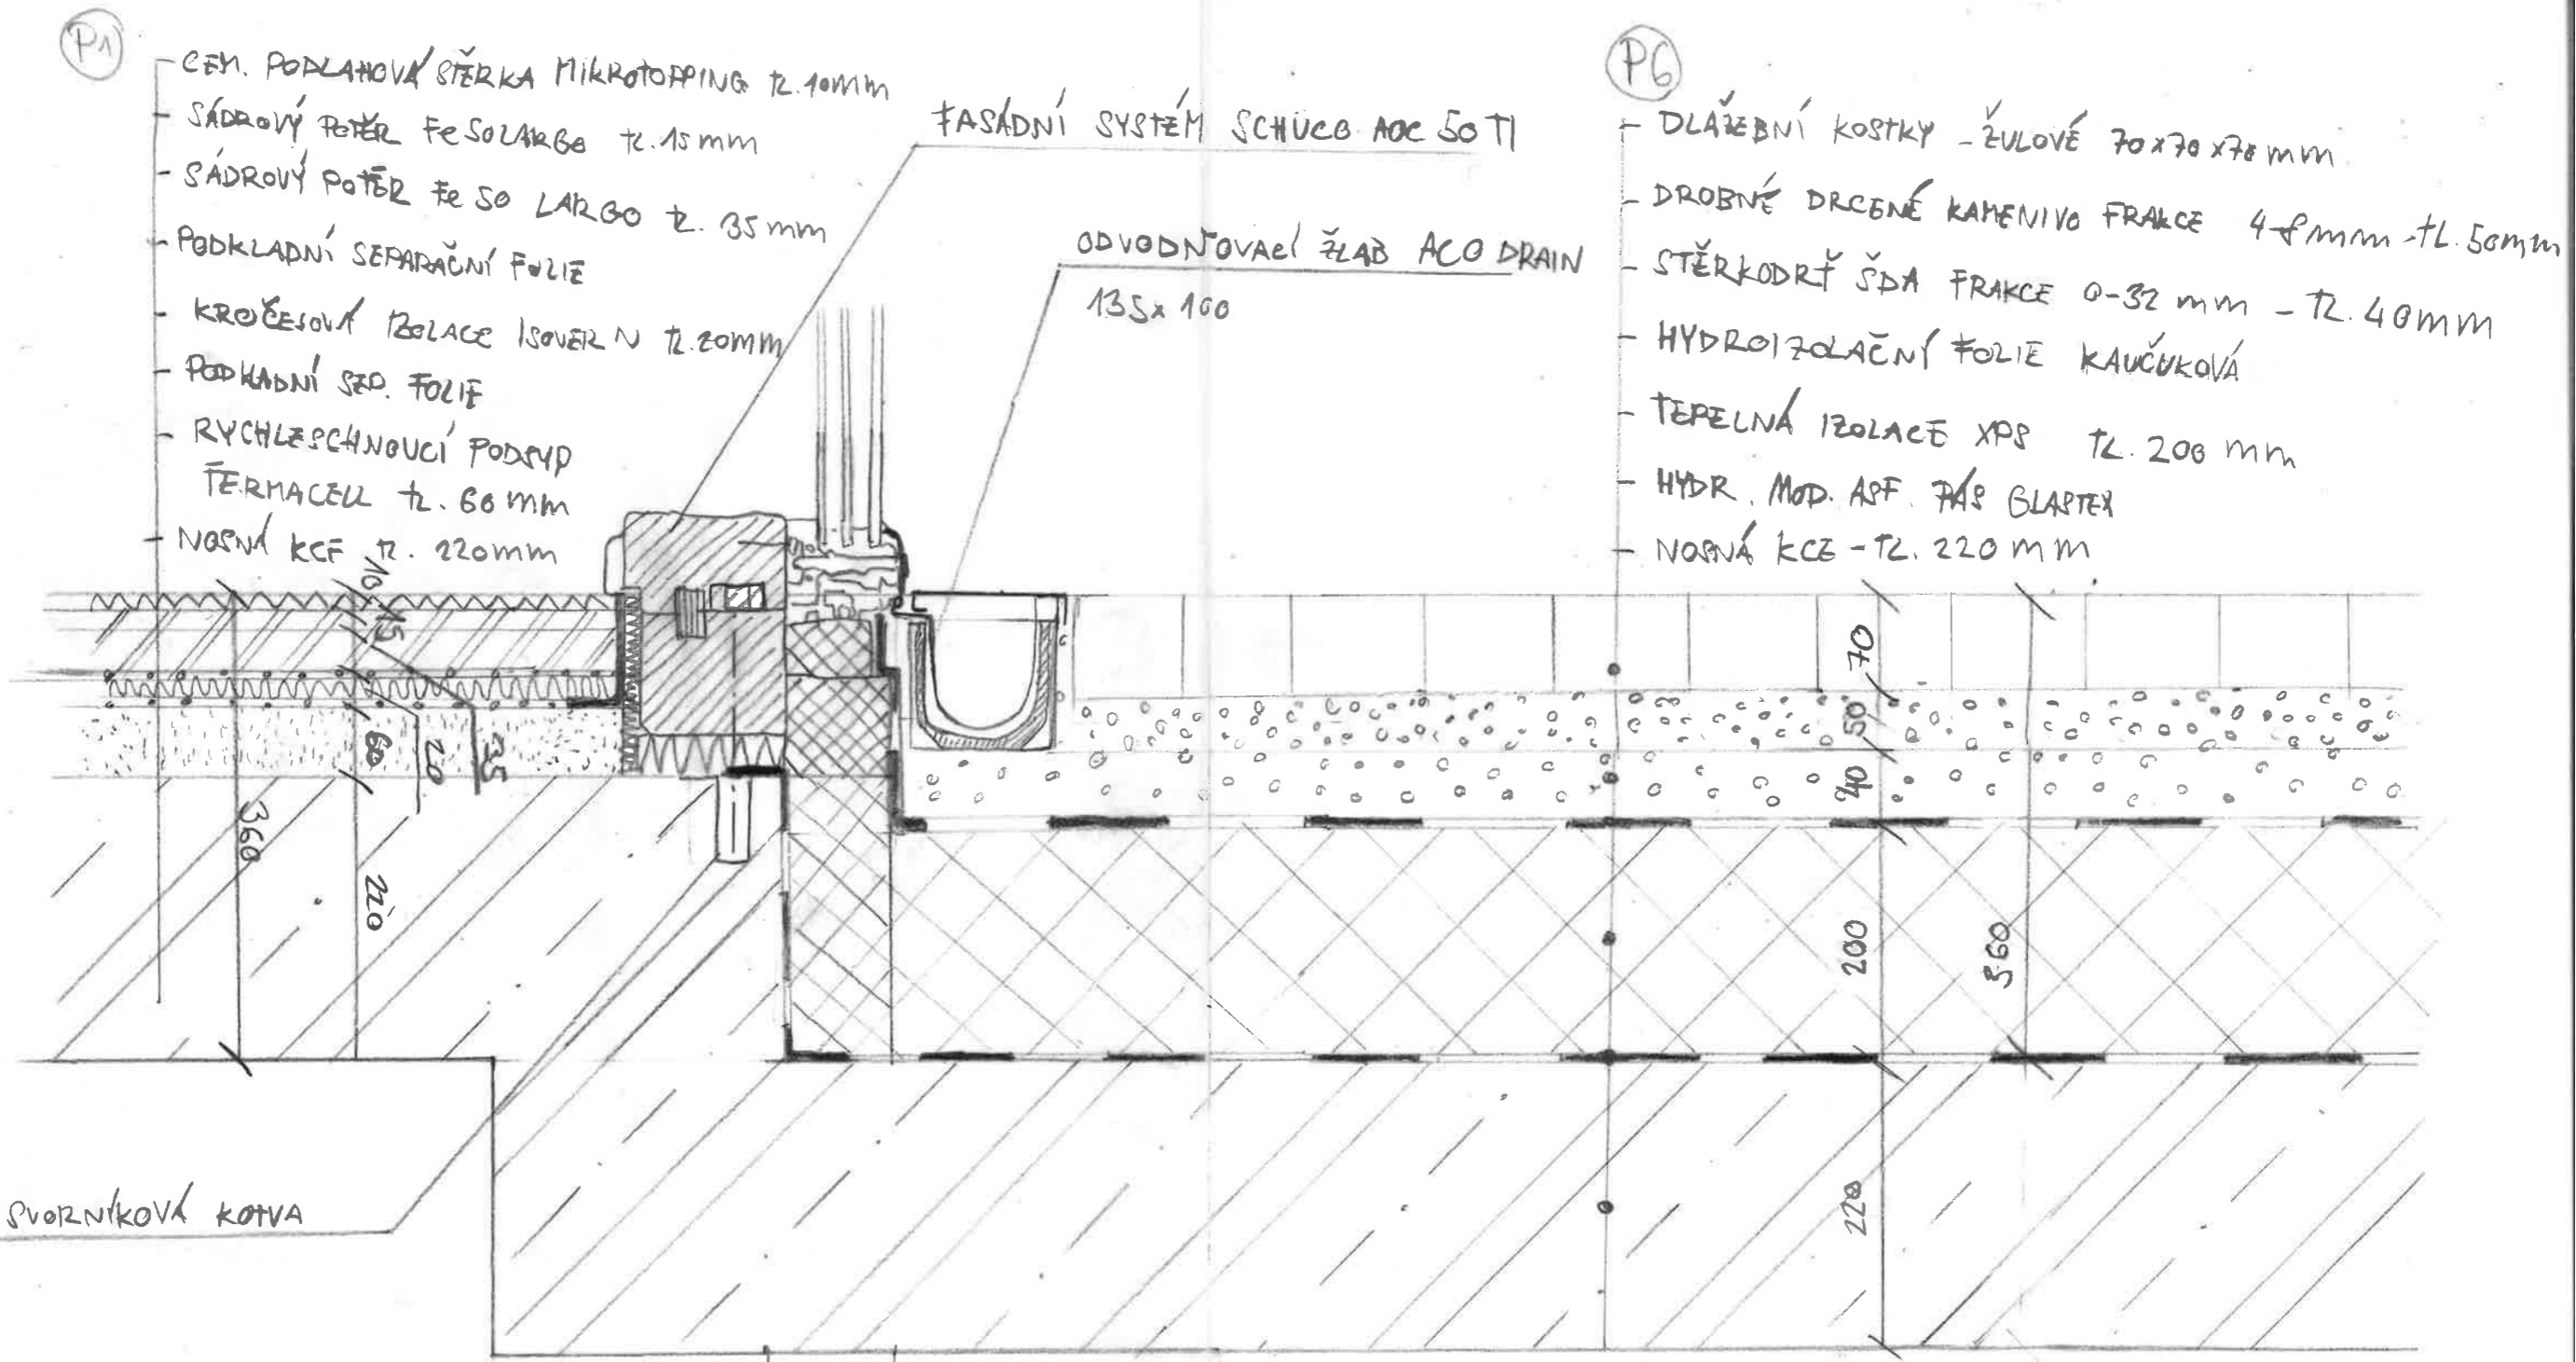 P1
CEM. PODLAHOVÁ STĚRKA MIKROTOPPING TL. 10mm
SÁDROVÝ POTĚR FE SOLARGO TL. 15mm
SÁDROVÝ POTĚR FE SO LARGO TL. 35mm
PODKLADNÍ SEPARAČNÍ FOLIE
KROČEJOVÁ IZOLACE ISOVER N TL. 20mm
PODKADNÍ SEP. FOLIE
RYCHLESCHNOUCÍ PODSYP
FERMACELL TL. 60mm
NOSNÁ KCE TL. 220mm
FASÁDNÍ SYSTÉM SCHÜCO AOC 50 TI
ODVODŇOVACÍ ŽLAB ACO DRAIN
135x100
P6
DLAŽEBNÍ KOSTKY - ŽULOVÉ 70x70x70mm
DROBNÉ DRCENÉ KAMENIVO FRAKCE 4-8mm - TL. 50mm
STĚRKODRŤ ŠDA FRAKCE 0-32 mm - TL. 40mm
HYDROIZOLAČNÍ FOLIE KAUČUKOVÁ
TEPELNÁ IZOLACE XPS TL. 200 mm
HYDR. MOD. ASF. PÁS GLASTEK
NOSNÁ KCE - TL. 220 mm
10
15
60
20
35
360
220
70
50
40
200
360
220
SVORNÍKOVÁ KOTVA